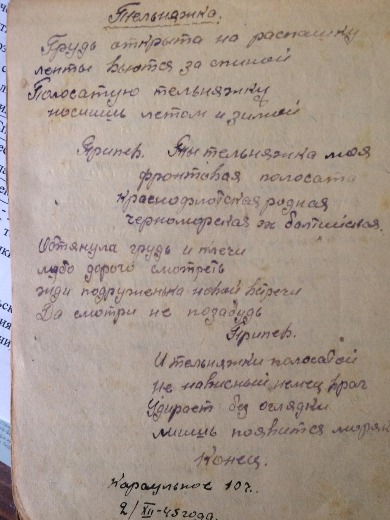 Тельняжка.
Грудь открыта на распашку
ленты вьются за спиной
Полосатую тельняжку
носишь летом и зимой
Припев. Ты тельняжка моя
фронтовая полосата
краснофлотская родная
черноморская эх балтийская.
Обтянула грудь и плечи
любо дорого смотреть
жди подруженька новой встречи
Да смотри не позабудь
Припев.
И тельняжки полосатой
Не нависный немец враг
Удирает без оглядки
лишь появится моряк
Конец.
Караульное 10 г.
2/XII-45 года.